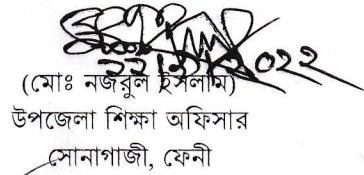 ২০২২
(মোঃ নজরুল ইসলাম)
উপজেলা শিক্ষা অফিসার
সোনাগাজী, ফেনী